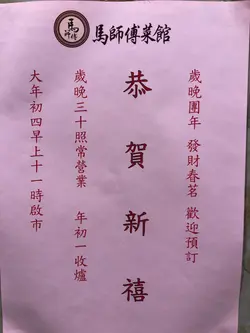 馬師傅
馬師傅菜館
歲晚團年 發財春茗 歡迎預訂
恭賀新禧
歲晚三十照常營業 年初一收爐
大年初四早上十一時啟市